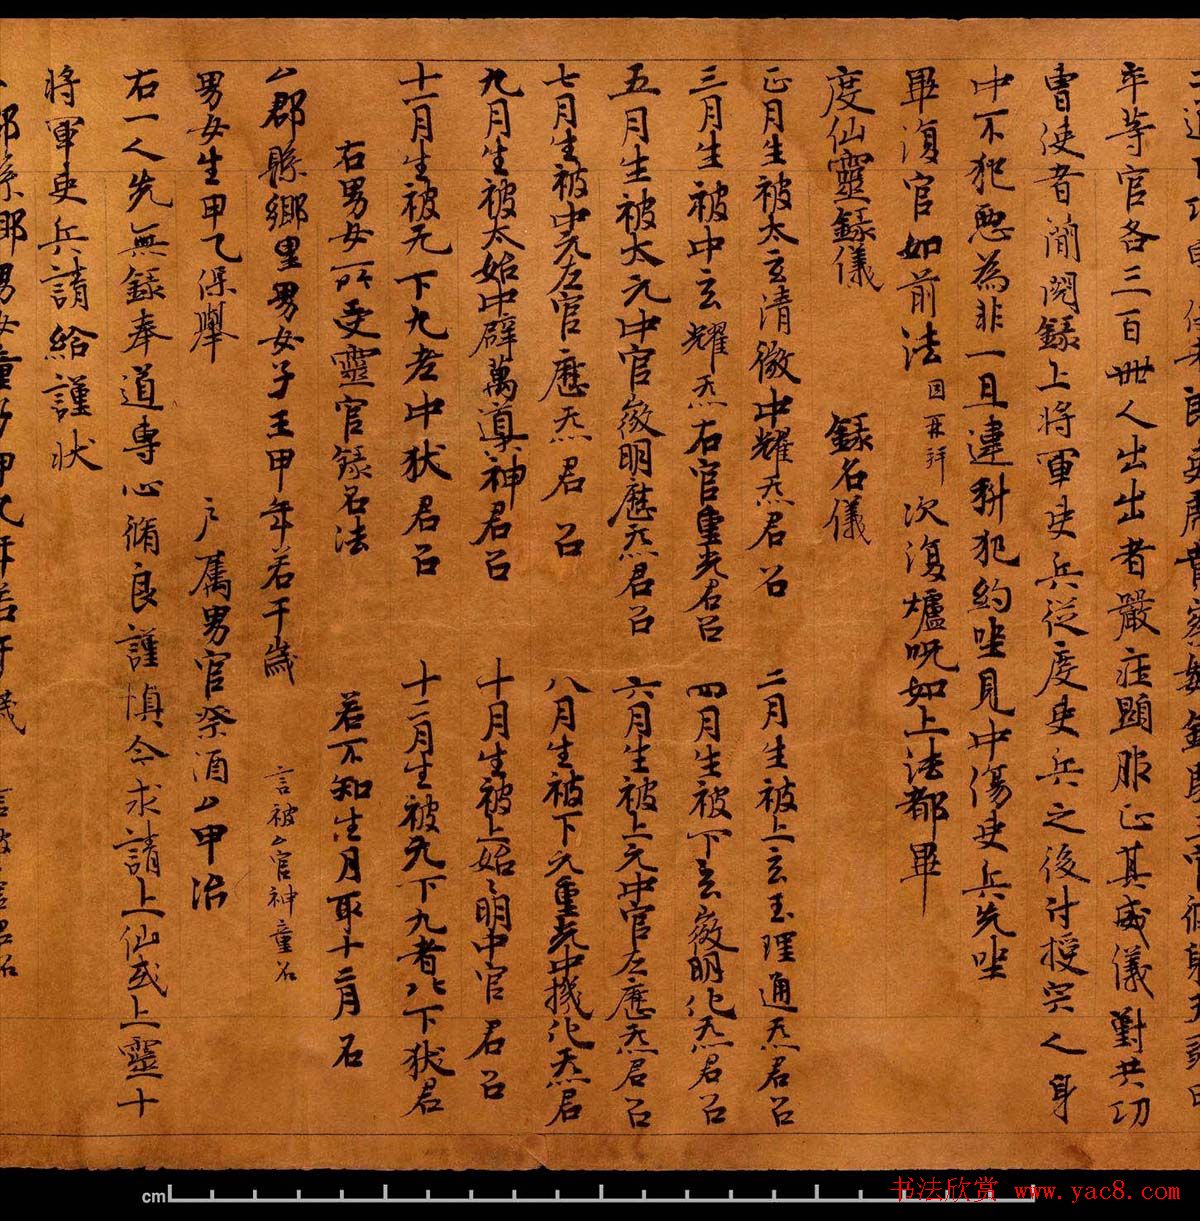 率等官各三百卅人出出者嚴庄顯服正其威儀對共功
曹使者蕳閱錄上將軍吏兵從度吏兵之後付授宍人身
中不犯惡為非一旦違科犯約坐見中傷吏兵先坐
畢復官如前法 因再拜 次復爐呪如上法都畢
度仙靈錄儀 錄名儀
正月生被太玄清徽中耀炁君召 二月生被上玄玉理通炁君召
三月生被中玄耀炁右官重光君召 四月生被下玄徽明化炁君召
五月生被太元中官徽明應炁君召 六月生被上元中官左應炁君召
七月生被中元左官應炁君召 八月生被下元重光中機化炁君
九月生被太始中辟萬導神君召 十月生被上始明中官君召
十一月生被无下九老中狀君召 十二月生被无下九者八下狀君
右男女所受靈官錄名法 若不知生月取十二月召
厶郡縣鄉里男女子王甲年若干歲 言被厶官神童召
男女生甲乙保舉 戶屬男官祭酒厶甲治
右一人先無錄奉道專心脩良謹慎今求請上仙或上靈十
將軍吏兵請給謹狀
郡縣鄉男女童
cm
书法欣赏 www.yac8.com